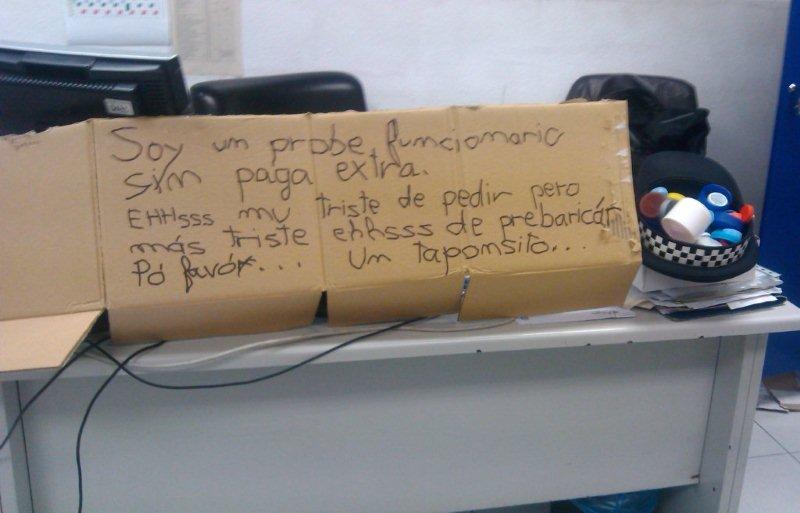 Soy un probe funcionario
sin paga extra.
EHHsss mu triste de pedir pero
más triste ehhsss de prebaricár
Pó favór... Un taponsito...